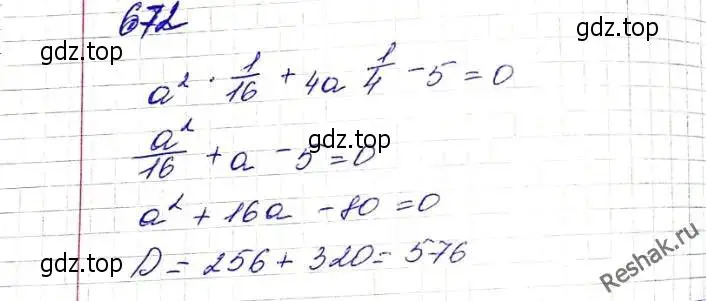 672
gdz.top gdz.top
a² · 1/16 + 4a 1/4 - 5 = 0
gdz.top
a²/16 + a - 5 = 0
a² + 16a - 80 = 0
gdz.top D = 256 + 320 = 576 gdz.top
Reshak.ru